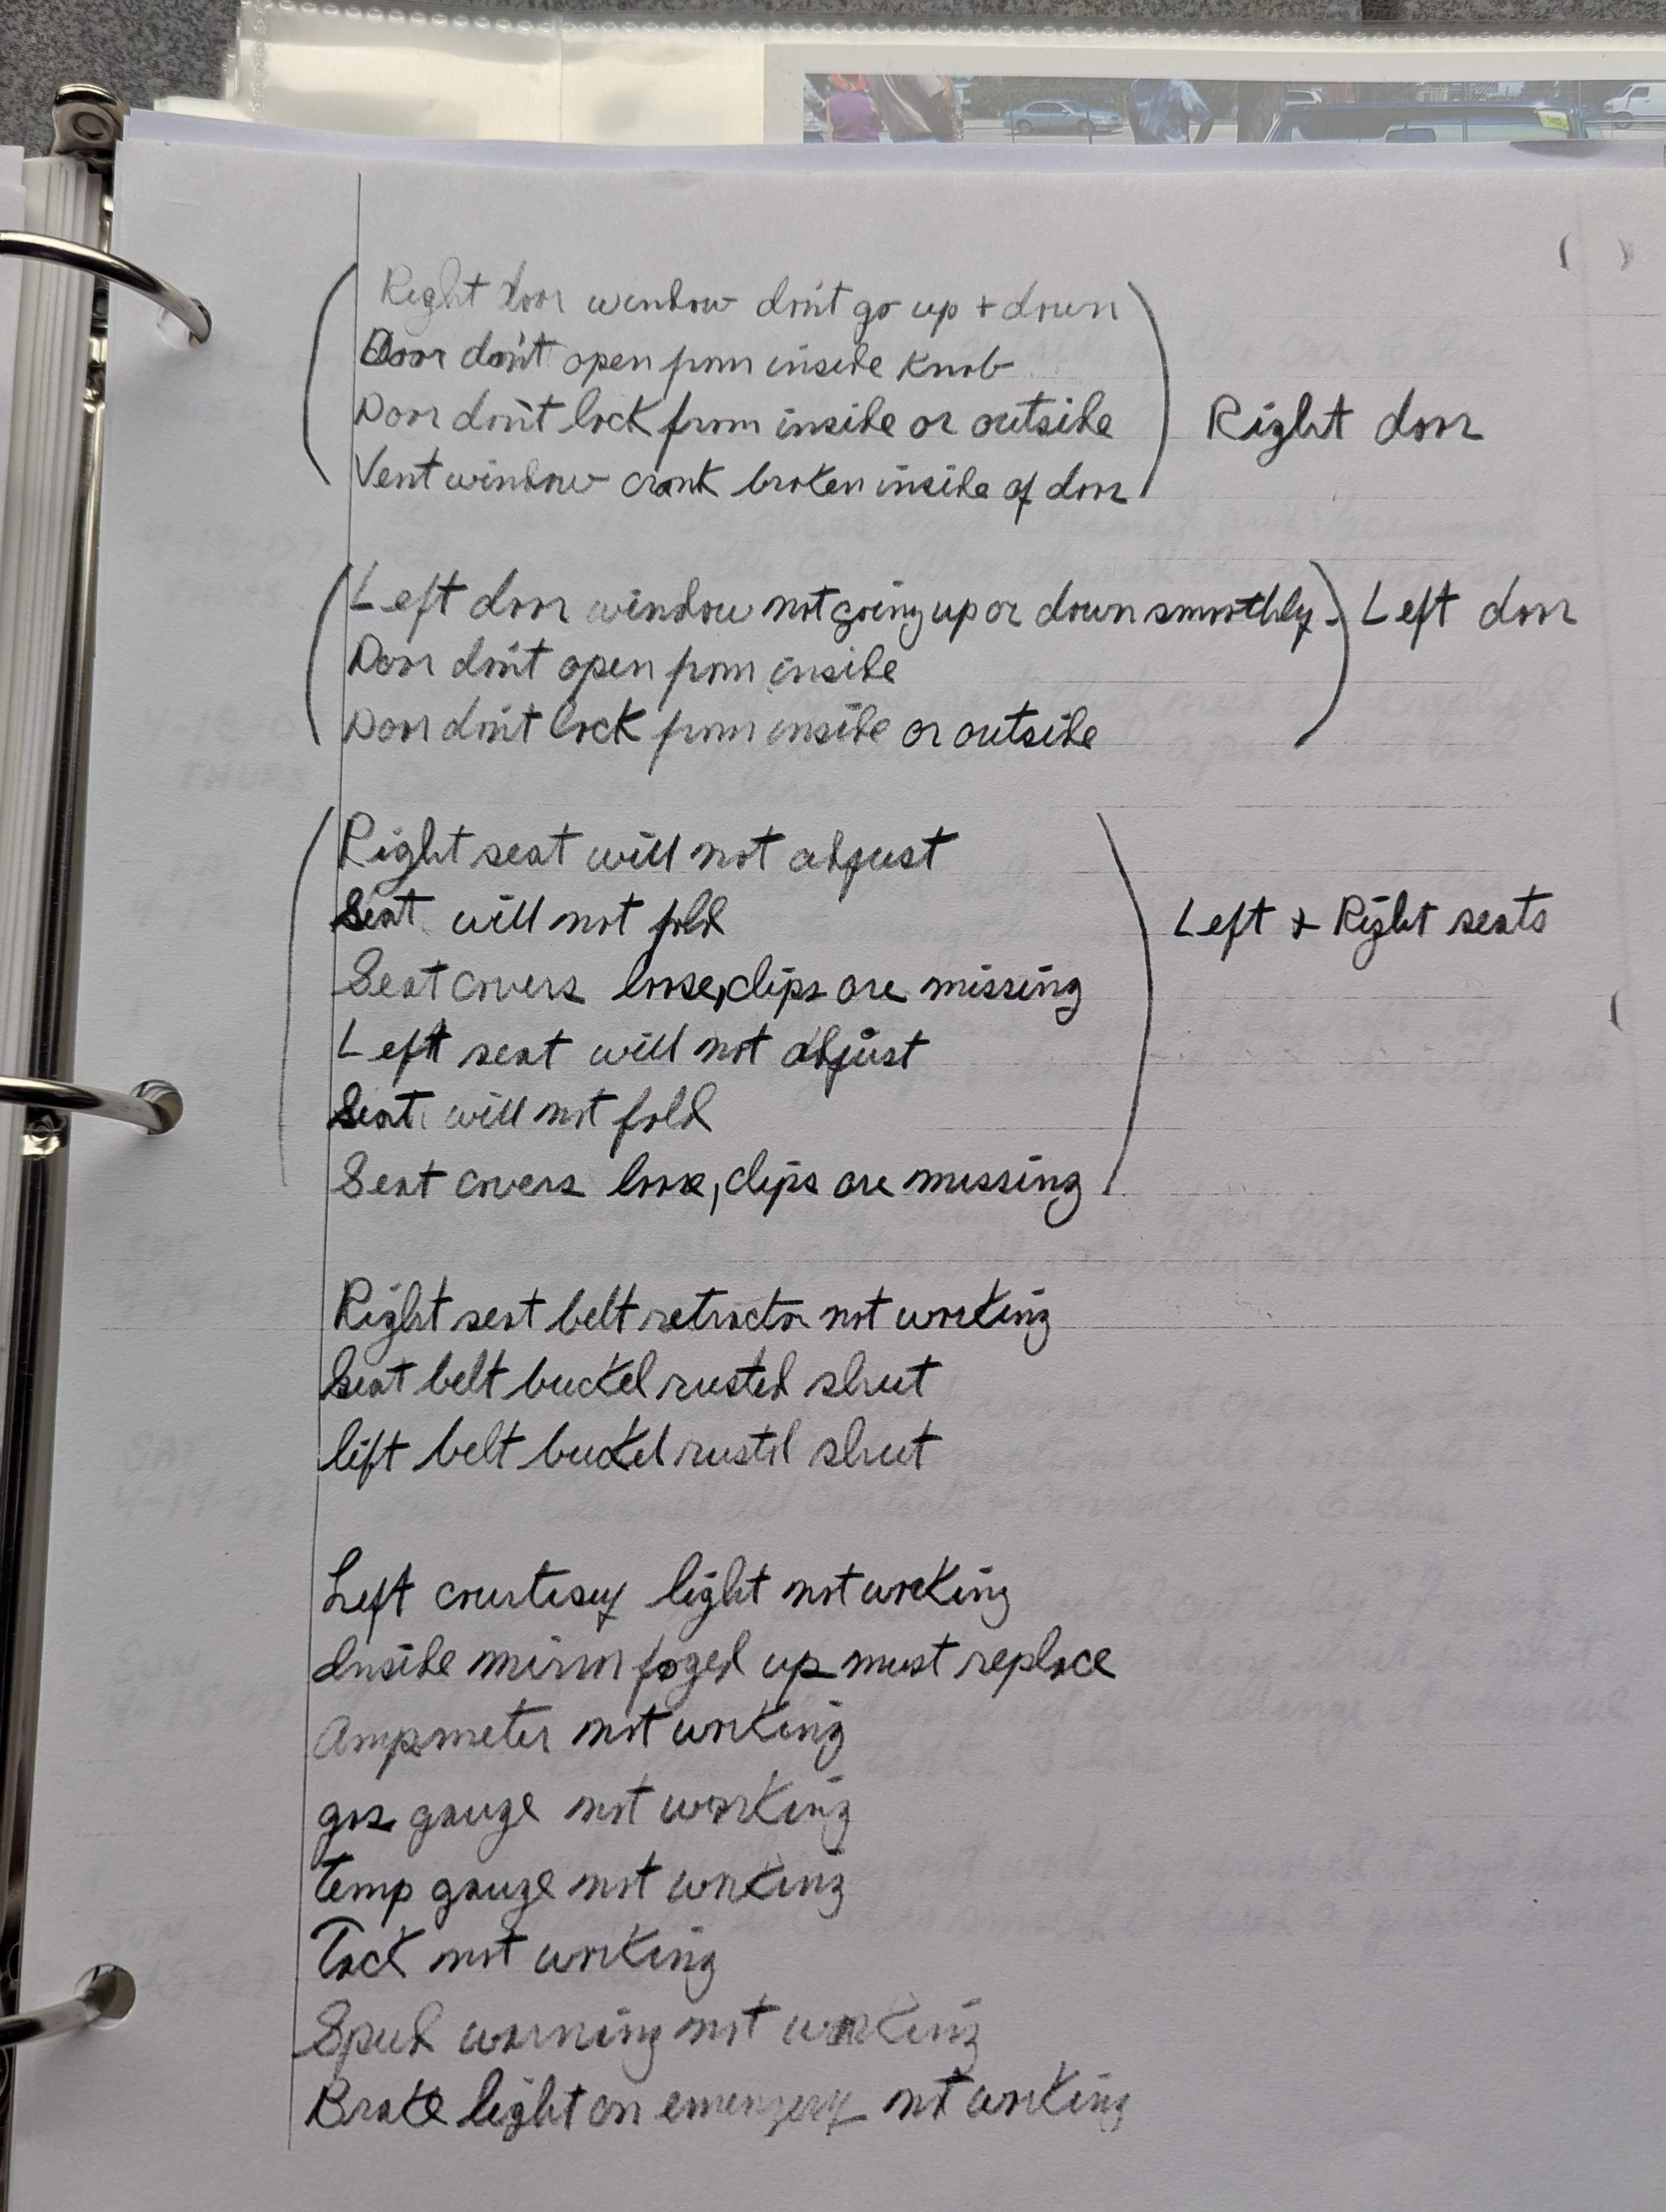 Right door window don't go up + down
Door don't open from inside knob
Door don't lock from inside or outside
Right door
Vent window crank broken inside of door
Left door window not going up or down smoothly.
Left door
Door don't open from inside
Door don't lock from inside or outside
Right seat will not adjust
Seat will not fold
Left + Right seats
Seat covers loose, clips are missing
Left seat will not adjust
Seat will not fold
Seat covers loose, clips are missing
Right seat belt retractor not working
Seat belt buckel rusted shut
left belt buckel rusted shut
Left courtisey light not working
Inside mirror foged up must replace
Ampmeter not working
gas gauge not working
temp gauge not working
Tack not working
Speed warning not working
Brake light on emergery not working
THURS
SAT
4-14-07